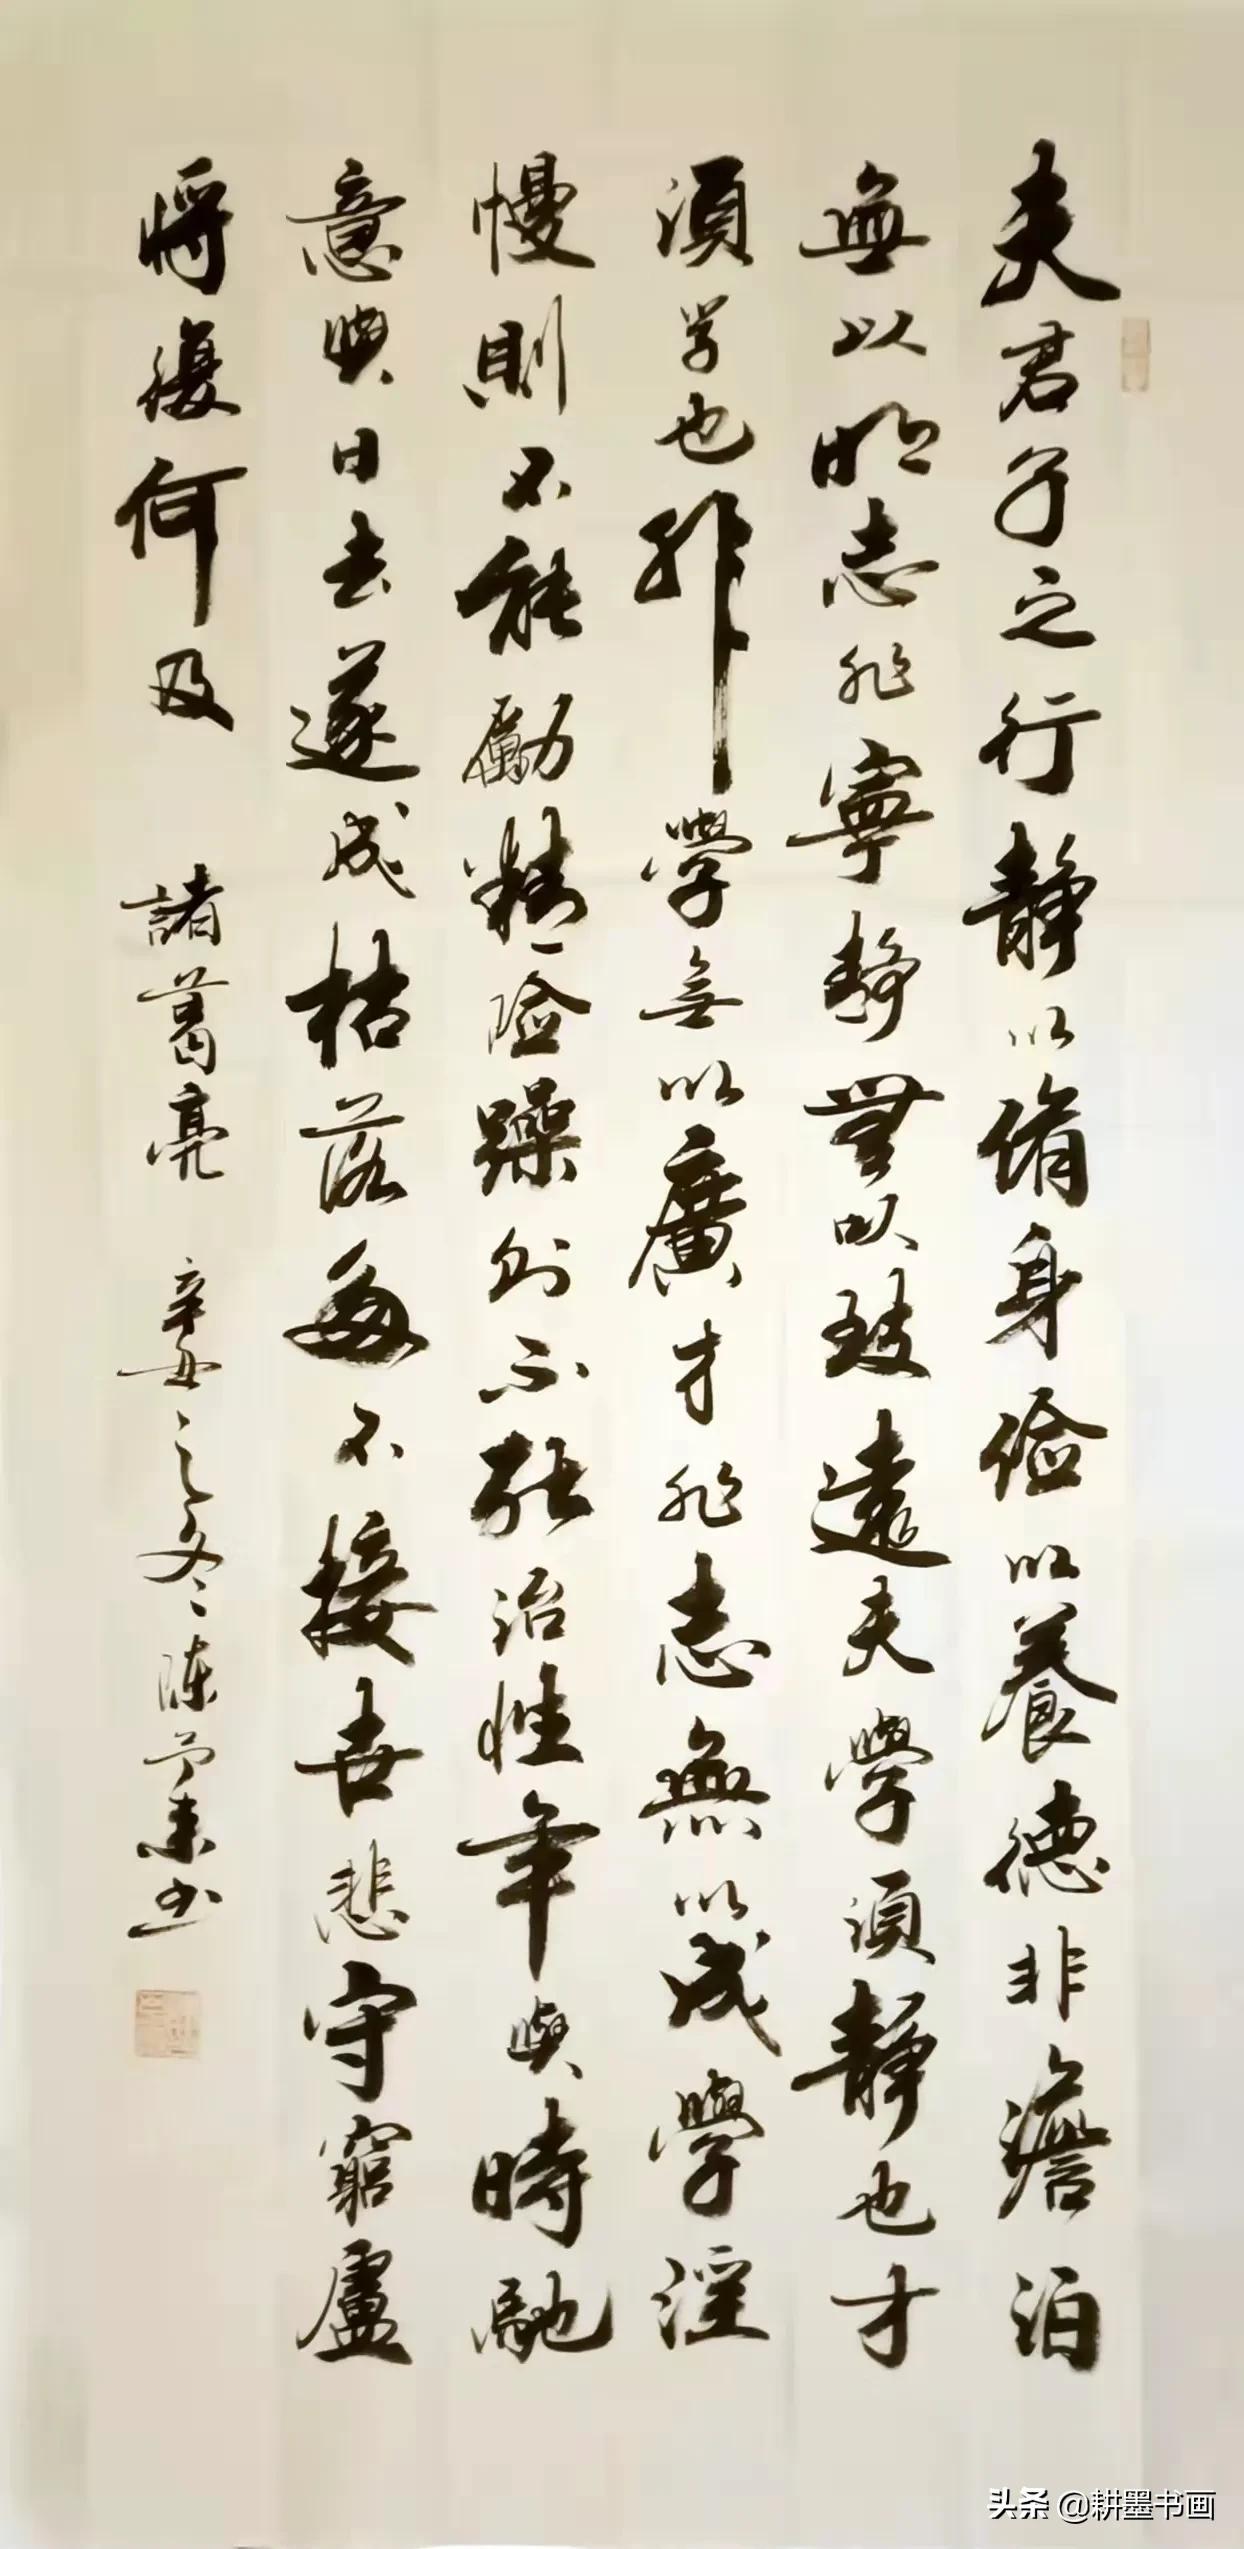 夫君子之行静以脩身俭以養德非澹泊
無以明志非寧静無以致遠夫學須静也才
須学也非學無以廣才非志無以成學淫
慢則不能勵精险躁則不能治性年與時馳
意與日去遂成枯落多不接世悲守窮盧
將復何及 諸葛亮 辛丑之冬 陳 书
头条 @耕墨书画